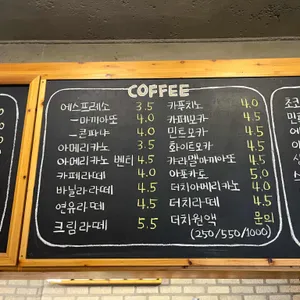 COFFEE
에스프레소 3.5
-마끼아또 4.0
-콘파나 4.0
아메리카노 3.5
아메리카노 벤티 4.5
카페라떼 4.0
바닐라라떼 4.5
연유라떼 4.5
크림라떼 5.5
카푸치노 4.0
카페모카 4.5
민트모카 4.5
화이트모카 4.5
카라멜마끼아또 4.5
아포카토 5.0
더치아메리카노 4.0
더치라떼 4.5
더치원액 문의
(250/550/1000)